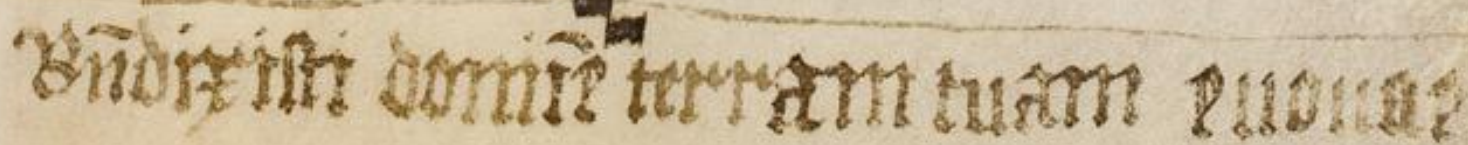 Bn̄dixisti domin̄e terram tuam euouae